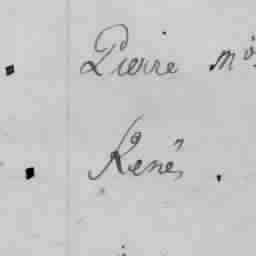 Pierre
René,